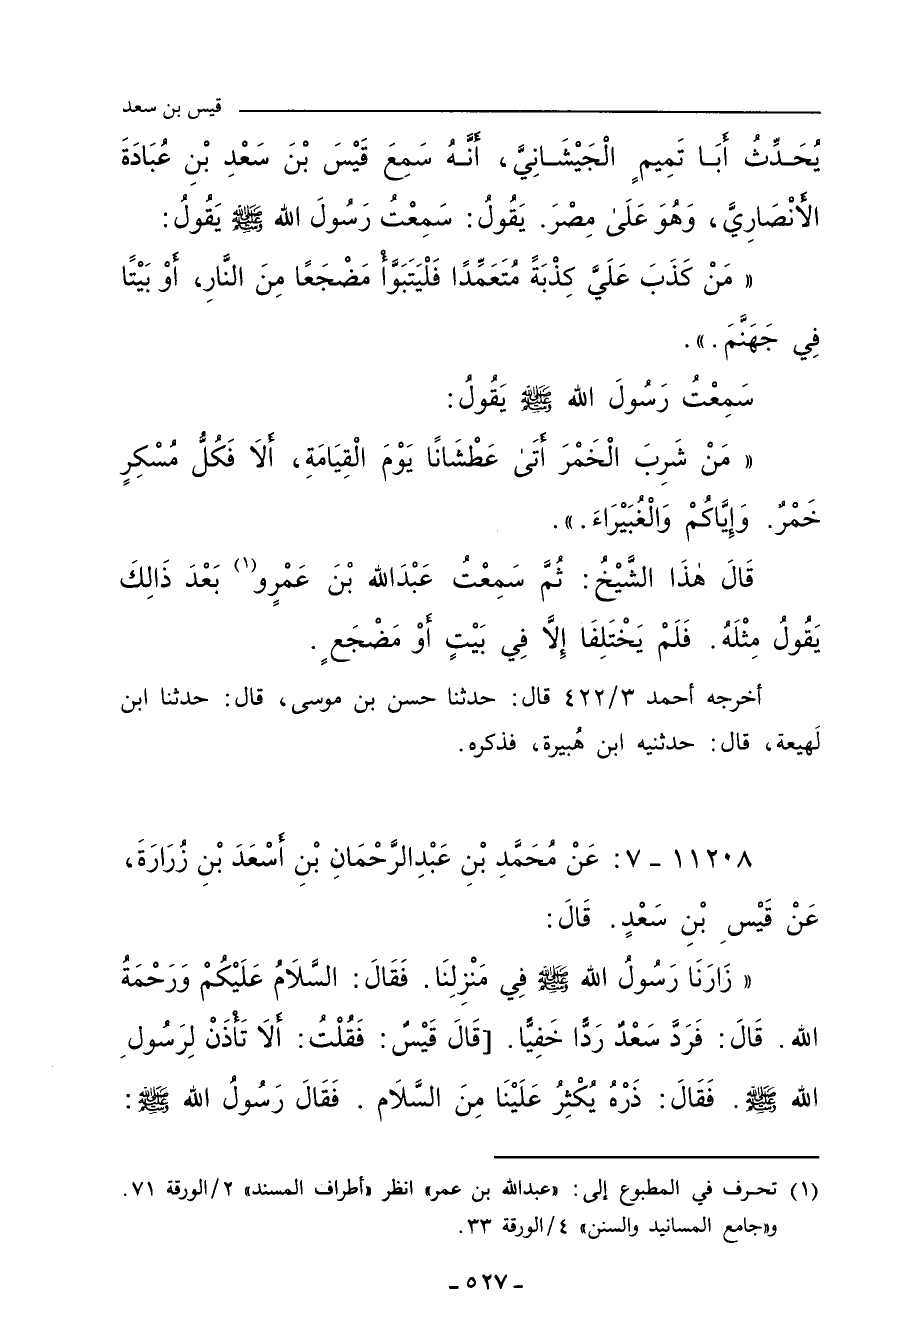 قيس بن سعد
يُحَدِّثُ أَبَا تَمِيمٍ الْجَيْشَانِيَّ، أَنَّهُ سَمِعَ قَيْسَ بْنَ سَعْدِ بْنِ عُبَادَةَ
الأَنْصَارِيَّ، وَهُوَ عَلَىٰ مِصْرَ. يَقُولُ: سَمِعْتُ رَسُولَ الله ﷺ يَقُولُ:
« مَنْ كَذَبَ عَلَيَّ كِذْبَةً مُتَعَمِّدًا فَلْيَتَبَوَّأْ مَضْجَعًا مِنَ النَّارِ، أَوْ بَيْتًا
فِي جَهَنَّمَ . ».
سَمِعْتُ رَسُولَ الله ﷺ يَقُولُ:
« مَنْ شَرِبَ الْخَمْرَ أَتَىٰ عَطْشَانًا يَوْمَ الْقِيَامَةِ، أَلَا فَكُلُّ مُسْكِرٍ
خَمْرٌ. وَإِيَّاكُمْ وَالْغُبَيْرَاءَ . ».
قَالَ هٰذَا الشَّيْخُ: ثُمَّ سَمِعْتُ عَبْدَالله بْنَ عَمْرٍو(١) بَعْدَ ذَالِكَ
يَقُولُ مِثْلَهُ. فَلَمْ يَخْتَلِفَا إِلَّا فِي بَيْتٍ أَوْ مَضْجَعٍ.
أخرجه أحمد ٤٢٢/٣ قال: حدثنا حسن بن موسى، قال: حدثنا ابن
لَهيعة، قال: حدثنيه ابن هُبيرة، فذكره.
١١٢٠٨ - ٧: عَنْ مُحَمَّدِ بْنِ عَبْدِالرَّحْمَانِ بْنِ أَسْعَدَ بْنِ زُرَارَةَ،
عَنْ قَيْسِ بْنِ سَعْدٍ. قَالَ:
« زَارَنَا رَسُولُ الله ﷺ فِي مَنْزِلِنَا. فَقَالَ: السَّلَامُ عَلَيْكُمْ وَرَحْمَةُ
الله. قَالَ: فَرَدَّ سَعْدٌ رَدًّا خَفِيًّا. [قَالَ قَيْسٌ: فَقُلْتُ: أَلَا تَأْذَنْ لِرَسُولِ
الله ﷺ. فَقَالَ: ذَرْهُ يُكْثِرُ عَلَيْنَا مِنَ السَّلَامِ. فَقَالَ رَسُولُ الله ﷺ:
(١) تحرف في المطبوع إلى: «عبدالله بن عمر» انظر «أطراف المسند» ٢/الورقة ٧١.
و«جامع المسانيد والسنن» ٤/الورقة ٣٣.
- ٥٢٧ -